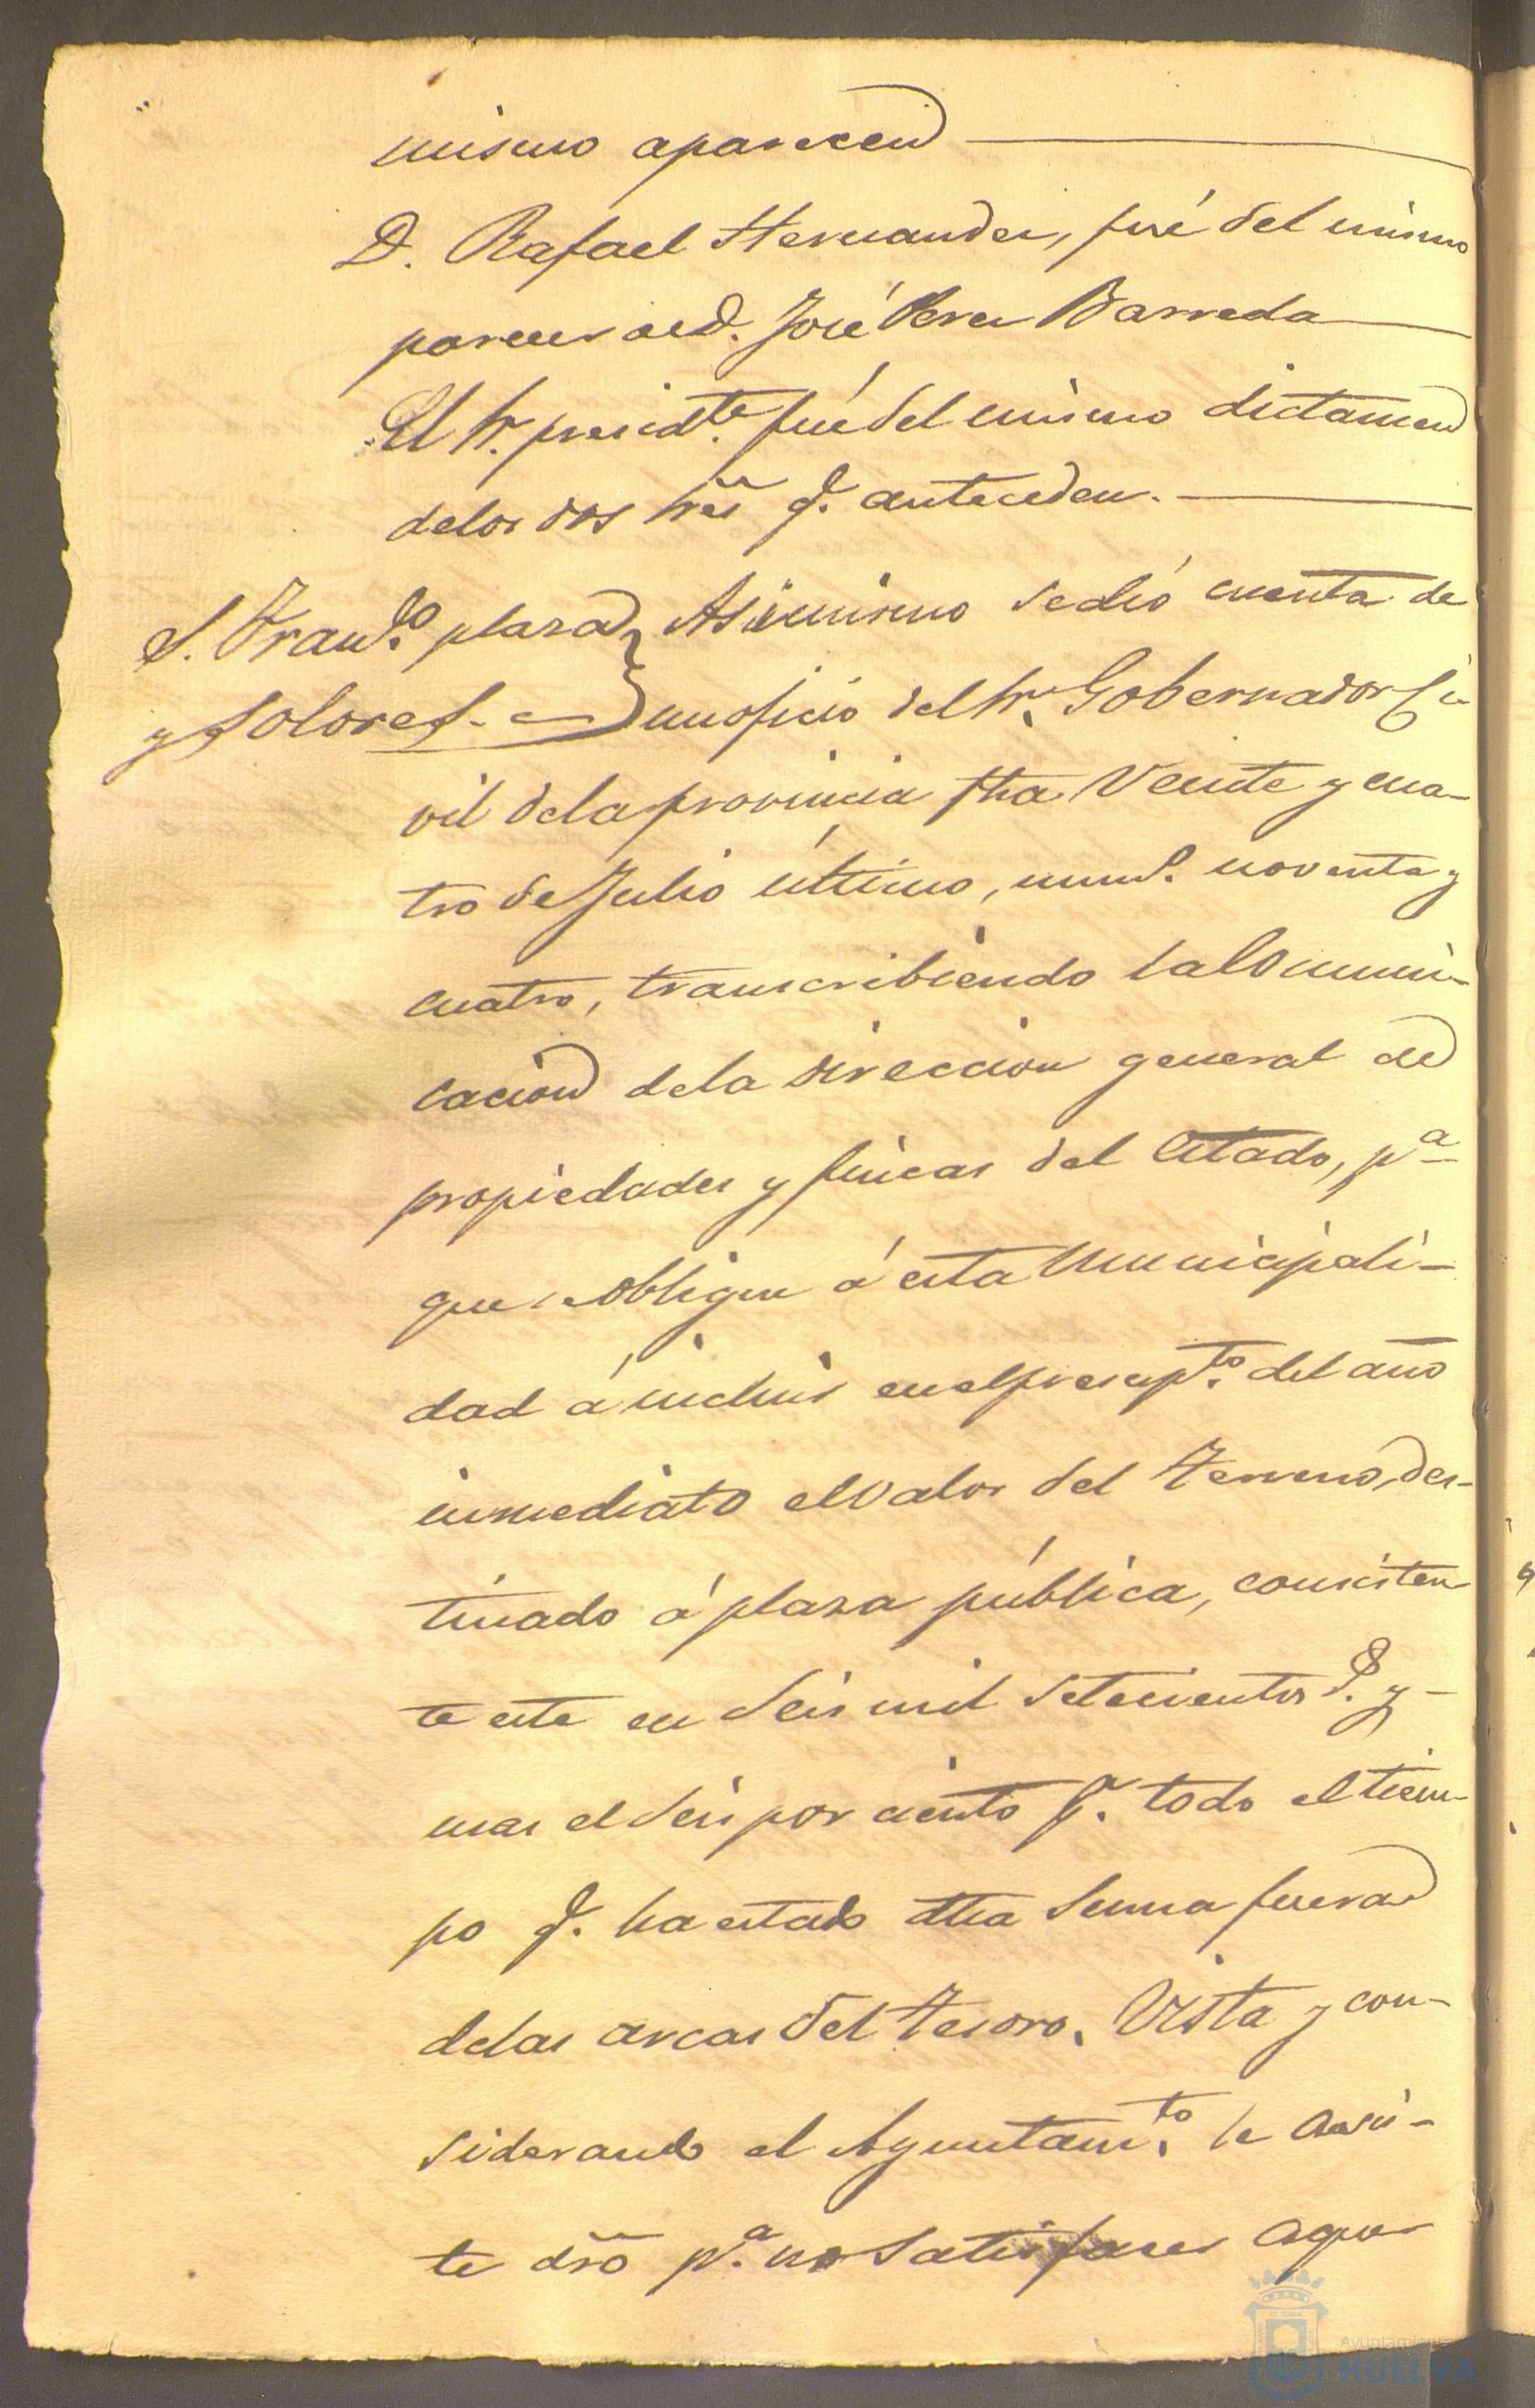 mismo aparecen
D. Rafael Hernandez, fué del mismo
parecer de D. José Perez Barreda
El Sr. presidte. fué del mismo dictamen
de los dos Sres q. anteceden.
S. Franco. plaza
y Solores.
Asimismo se dió cuenta de
un oficio del Sr. Gobernador Ci-
vil de la provincia fha Veinte y cua-
tro de Julio último, numo. noventa y
cuatro, transcribiendo la Comuni-
cacion de la direccion general de
propiedades y fincas del Estado, pa.
que se obligue á esta Municipali-
dad á incluir en el presupto. del año
inmediato el valor del terreno, des-
tinado á plaza pública, consisten
te este en Seis mil Setecientos rs. y
mas el Seis por ciento pr. todo el tiem-
po q. ha estado dha Suma fuera
de las arcas del tesoro. Vista y con-
siderando el Ayuntamto. le asis-
te dro pa. no Satisfacer aque